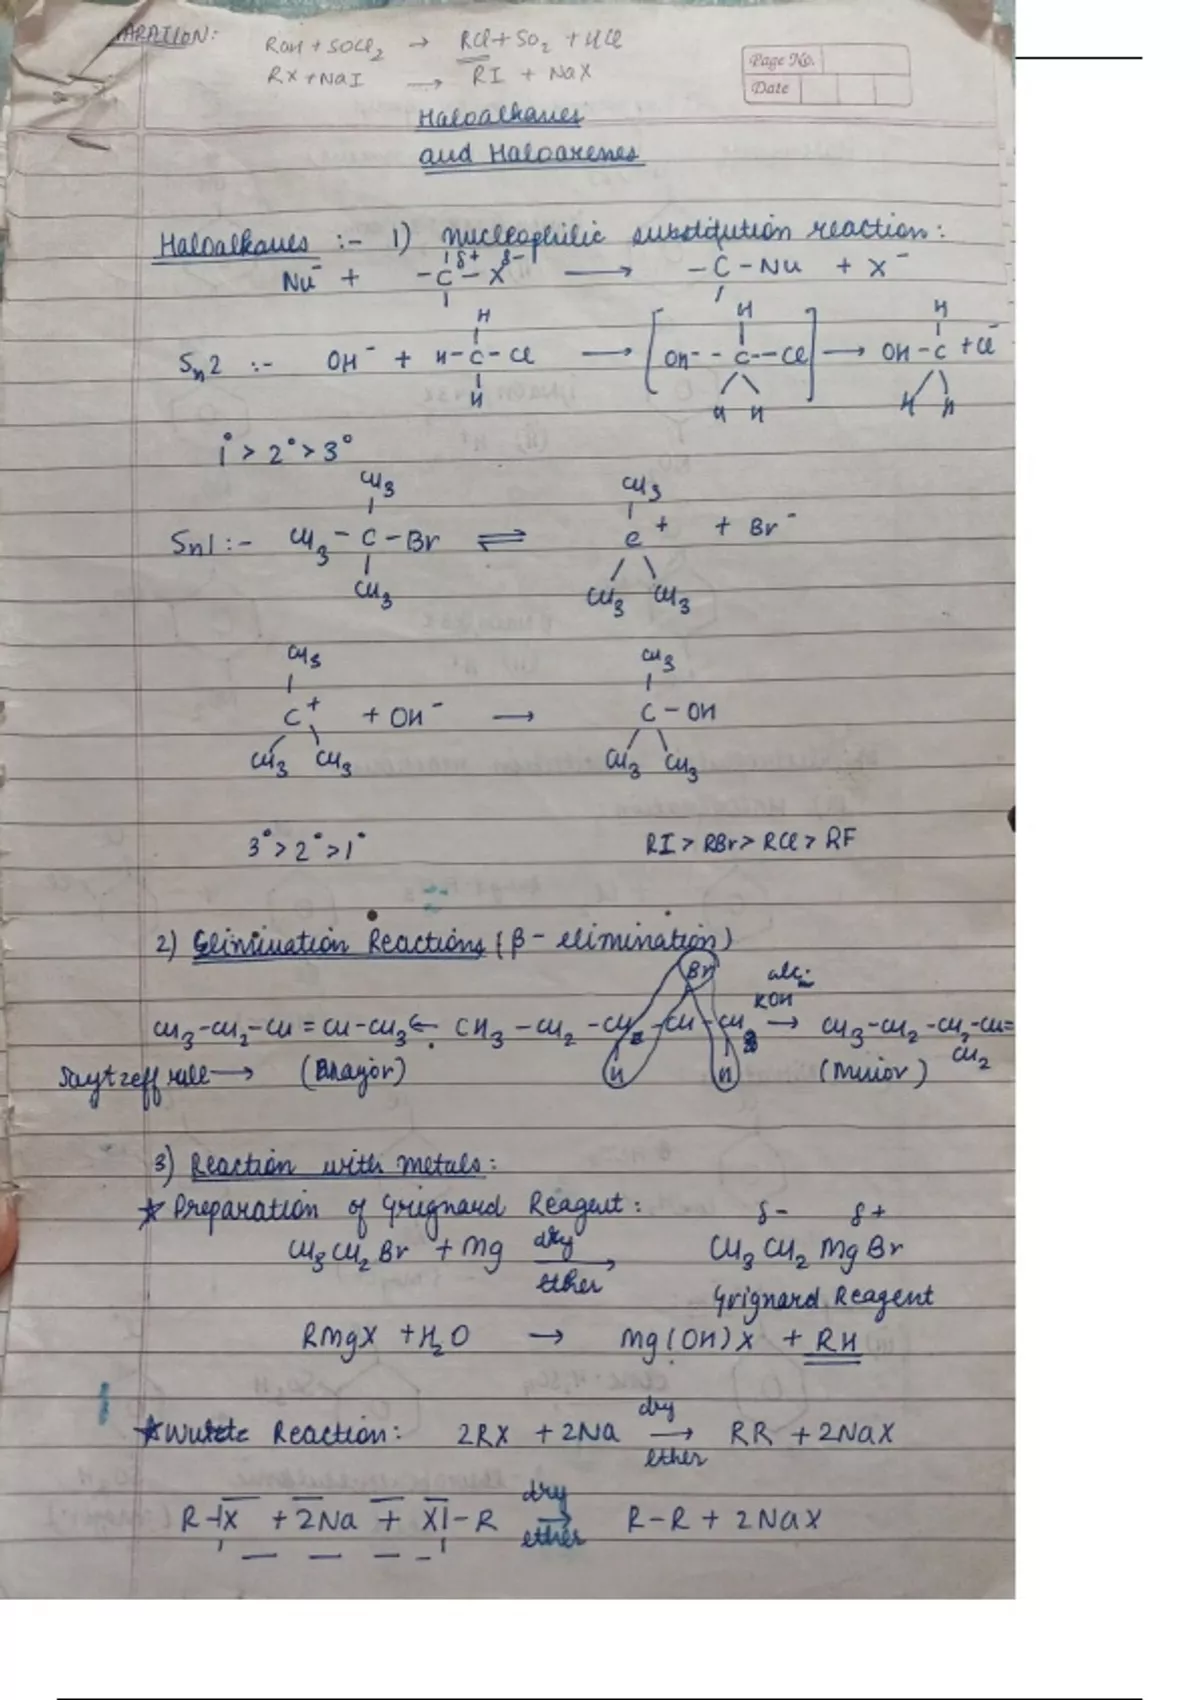 ARATION:
ROH + SOCl2 → RCl + SO2 + HCl
RX + NaI → RI + NaX
Page No.
Date
Haloalkanes
and Haloarenes
Haloalkanes :- 1) nucleophilic substitution reaction:
Nu⁻ + -C^δ+-X^δ- → -C-Nu + X⁻
H H H
Sn2 :- OH⁻ + H-C-Cl → [OH--C--Cl] → OH-C + Cl⁻
H H H H H
1° > 2° > 3°
CH3 CH3
Sn1 :- CH3-C-Br ⇌ C+ + Br⁻
CH3 CH3 CH3
CH3 CH3
C+ + OH⁻ → C-OH
CH3 CH3 CH3 CH3
3° > 2° > 1° RI > RBr > RCl > RF
2) Elimination Reactions (β- elimination)
Br alc.
KOH
CH3-CH2-CH=CH-CH3 ← CH3-CH2-CH-CH-CH2 → CH3-CH2-CH2-CH=
CH2
Saytzeff rule → (Major) H H (Minor)
3) Reaction with metals:
* Preparation of Grignard Reagent: δ- δ+
CH3CH2Br + Mg dry → CH3CH2MgBr
ether
Grignard Reagent
RMgX + H2O → Mg(OH)X + RH
* Wurtz Reaction: 2RX + 2Na dry → RR + 2NaX
ether
R-X + 2Na + X-R dry → R-R + 2NaX
ether